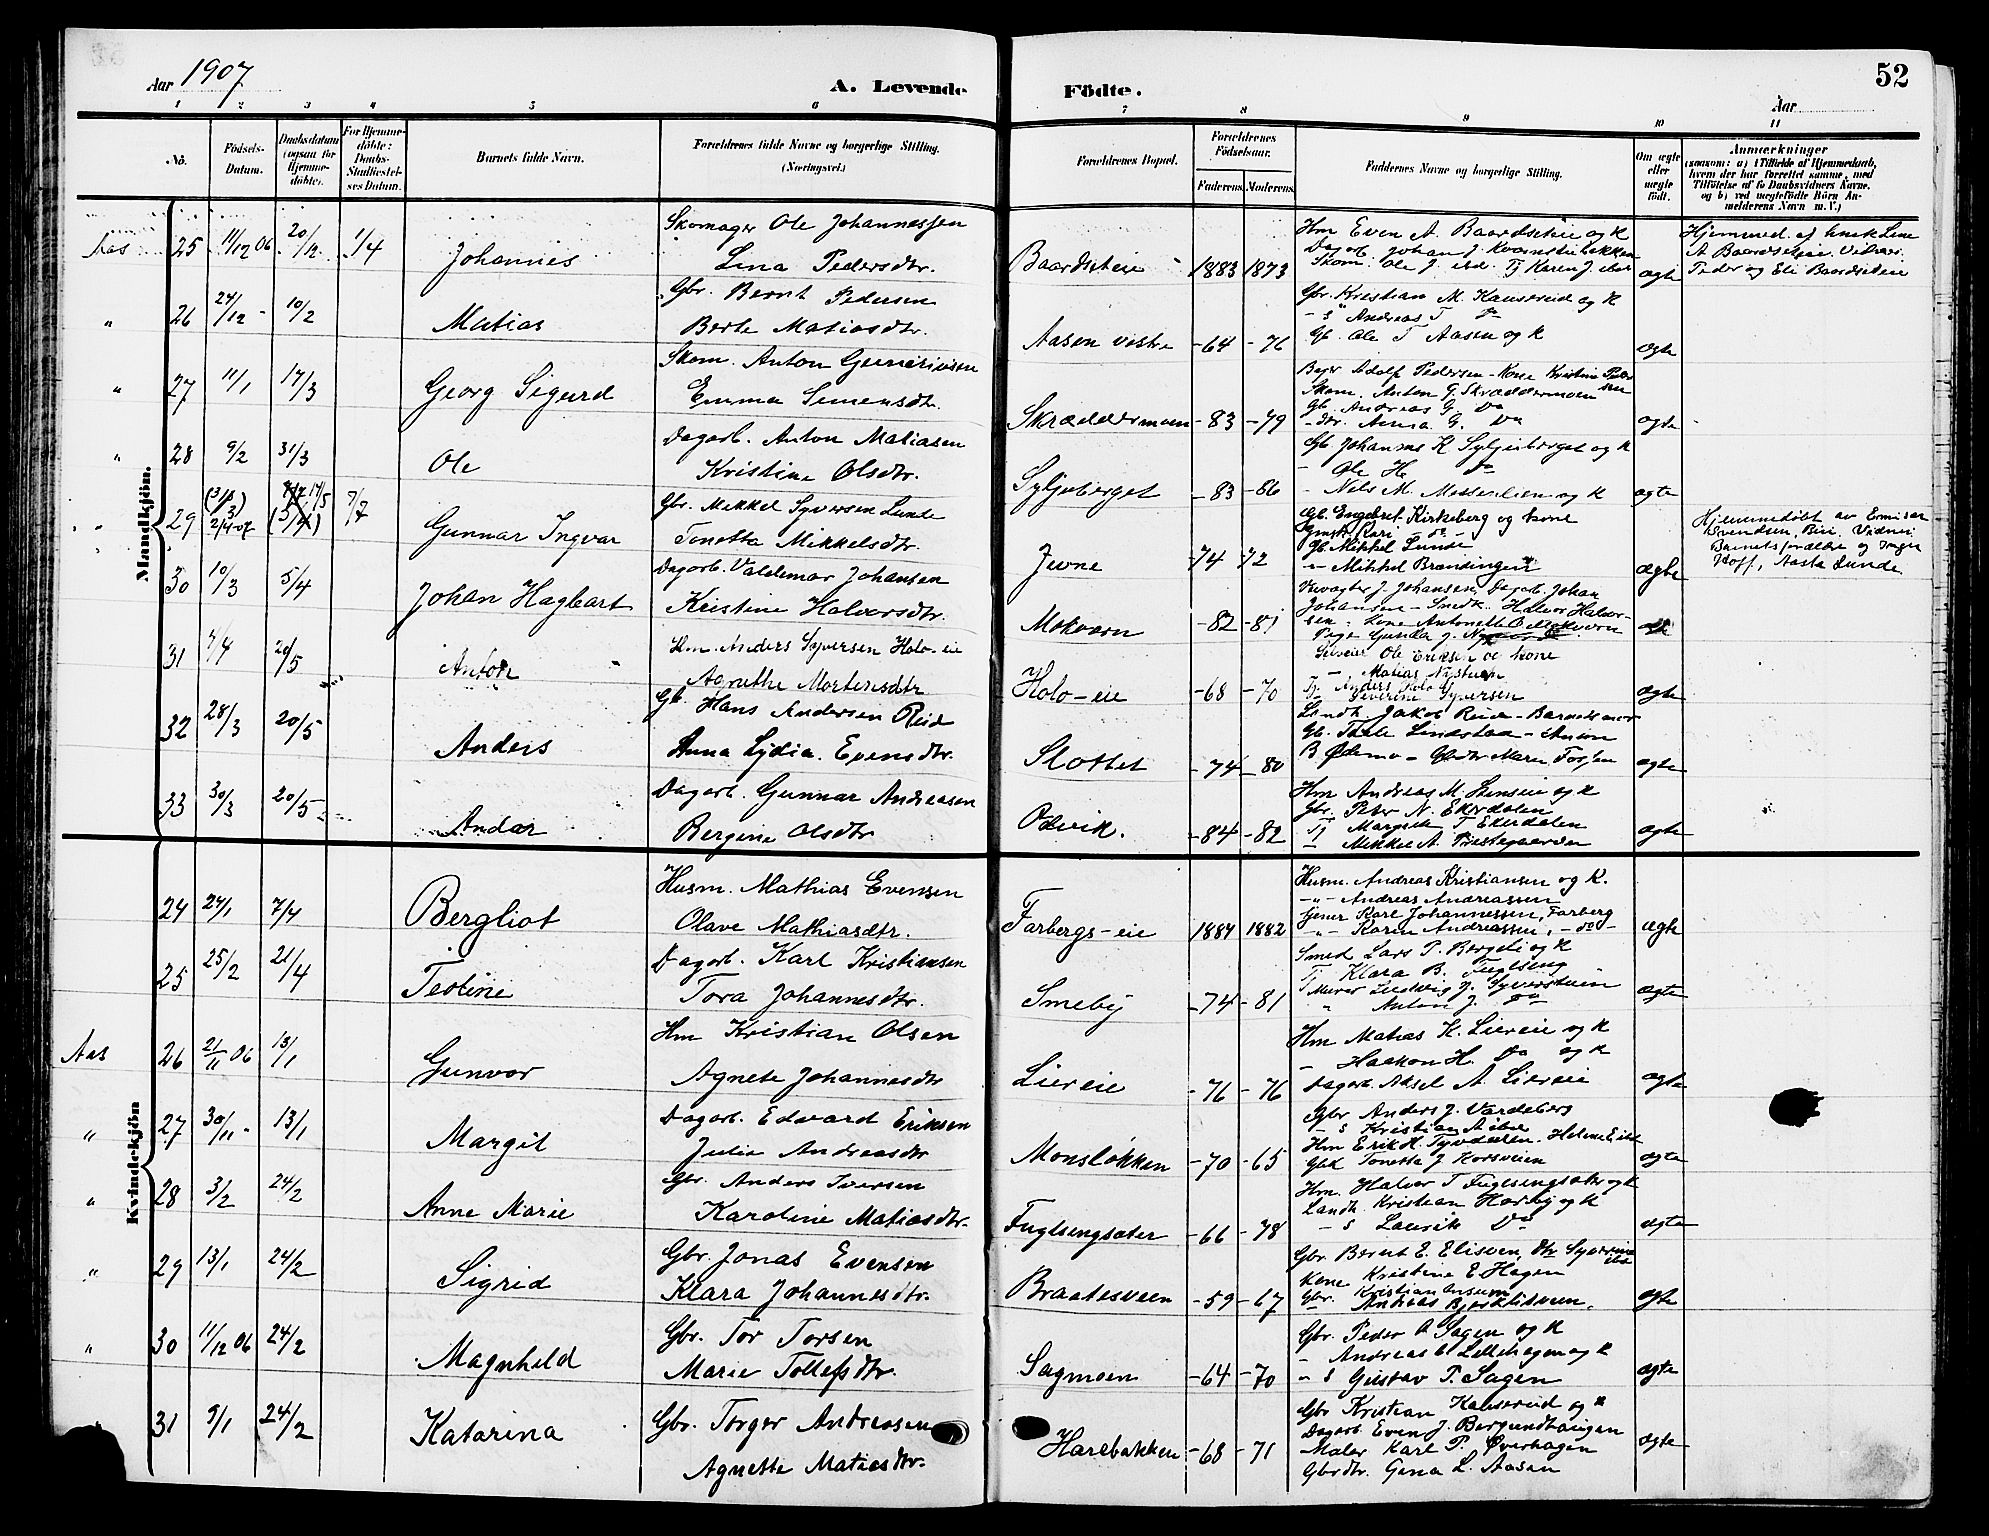 Aar 1907
A. Levende
Födte.
Aar
52
1 2 3 4 5 6 7 8 9 10 11
No.
Födsels-Datum.
Daabsdatum (ogsaa for Hjemme-döbte).
For Hjemme-döbte: Daabs-Stadfæstel-ses Datum.
Barnets fulde Navn.
Forældrenes fulde Navne og borgerlige Stilling. (Næringsvei.)
Forældrenes Bopæl.
Forældrenes Födselsaar.
Faderens. Moderens.
Faddernes Navne og borgerlige Stilling.
Om ægte eller uægte födt.
Anmærkninger
(saasom: a) i Tilfælde af Hjemmedaab, hvem der har forrettet samme, med Tilföielse af to Daabsvidners Navne, og b) ved uægtefödte Börn An-melderens Navn m. V.)
Mandkjön.
Aas 25 11/12 06 20/12 1/4 Johannes
Skomager Ole Johannessen
Lina Pedersdtr.
Baardseteie 1883 1873
Hm Even A Baardseteie og K
Dagarb. Johan J. Kvarnstulbakken
Skom. Ole J. ibd. Tj Karen J. ibd
ægte
A Baardseteie. Vidner:
Peder og Eli Baardseteie
" 26 24/12 - 10/2 Matias
Gbr. Bernt Pedersen
Berte Matiasdtr.
Aasen vestre -64 -76
Gbr. Kristian M. Hansereid og K
- s Andreas T Do
Gb. Ole T Aasen og K
ægte
" 27 11/1 17/3 Georg Sigurd
Skom. Anton Gunerinsen
Emma Simensdtr.
Skræddermoen -83 -79
Bager Adolf Pedersen - Kone Kristine Pedersen
Skom. Anton G. Skræddermoen
Gb. Andreas G. Do
- dtr. Anna G. Do
ægte
" 28 9/2 31/3 Ole
Dagarb. Anton Matiasen
Kristine Olsdtr.
Syljuberget -83 -86
Gb Johannes K Syljuberget og K
- Ole H Do
- Nels M. Messenlien og K
ægte
" 29 (31/3) 2/4-07 17/5 (5/4) 7/7 Gunnar Ingvar
Gbr. Mikkel Syversen Lunde
Tonetta Mikkelsdtr.
Jevne -74 -72
Gb. Engebret Kirkeberg og kone
Pgmdtr Kari do -
Gb Mikkel Lunde
- " - Mikkel Brændingen
ægte
Hjemmedøbt av Emisær
Svendsen, Biri. Vidner:
Barnets forældre og Inger
Hoff, Aasta Lunde
30 10/3 5/4 Johan Hagbart
Dagarb. Valdemar Johansen
Kristine Halvorsdtr.
Mokvern -82 -81
Vevagter J. Johansen, Dagarb Johan
Johansen - Smedk. Halvor Halvor-
sen. Lone Antonette O Mokvern
Pige Gunda J.
31 7/4 20/5 Anton
Hm. Anders Syversen Holo-eie
Agnethe Mortensdtr
Holo-eie -68 -70
Selveier Ole Eriksen og kone
- Matias Nystuen
Tj. Anders Holo
Severine Syversen
ægte
32 28/3 20/5 Anders
Gb. Hans Andersen Reid
Anna Lydia Evensdtr.
Slottet -74 -80
Landh. Jakob Reid - Barnets mor
Gb. Thale Lindstad - Anton
B Ødemo - Gbdtr Marie Fossen
ægte
33 30/3 20/5 Andar
Dagarb. Gunnar Andreasen
Bergine Olsdtr
Odvik. -84 -82
Hm Andreas M. Stenseie og K
Gbr. Peter N. Ekerdalen
Tj Margrete T Ekerdalen
- Mikkel A. Prestegaarden
ægte
Kvindekjön
24 24/1 7/4 Bergliot
Husm. Mathias Evensen
Olave Mathiasdtr.
Farbergs-eie 1884 1882
Husm. Andreas Kristiansen og K.
- " - Andreas Andreassen
tjener Karl Johannessen, Farberg
- " - Karen Andreassen, - do -
ægte
25 25/2 21/4 Teoline
Dagarb. Karl Kristiansen
Tora Johannesdtr.
Smeby -74 -81
Smed Lars P. Bergeli og K
Tj Klara B. Fuglseng
Murer Ludvig J. Syverstuen
" Anton J. Do
ægte
Aas 26 21/11 06 13/1 Gunvor
Hm Kristian Olsen
Agnete Johannesdtr
Liereie -76 -76
Hm Matias K. Liereie og K
- Haakon H. Do og K
Dagarb. Aksel A. Liereie
ægte
" 27 30/11 - 13/1 Margit
Dagarb. Edvard Eriksen
Julia Andreasdtr
Monsløkken -70 -65
Gbr Anders J. Vardeberg
- s Kristian A ibd
Hm Erik H. Tyvdæren. Helene E ibd
Gbk Tonetta J Korsveien
ægte
" 28 3/2 24/2 Anne Marie
Gbr. Anders Iversen
Karoline Matiasdtr.
Fuglsengsæter -66 -78
Hm. Halvor T Fuglsengsæter og K
Landh. Kristian Hørby og K
- s Laurik Do
ægte
" 29 13/1 24/2 Sigrid
Gbr. Jonas Evensen
Klara Johannesdtr.
Braatesveen -59 -67
Gbr. Bernt E. Elisveen, Dtr Syverine ibd
Kone Kristine E Hagen
Gbr. Kristian Ensum
- Andreas Bjørklitveen.
ægte
" 30 11/12 06 24/2 Magnhild
Gbr. Tor Torsen
Marie Tollefsdtr.
Sagmoen -64 -70
Gbr. Peder A Sagen og K
- Andreas C Lillehagen og K
- s Gustav P. Sagen
ægte
31 9/1 24/2 Katarina
Gbr. Torger Andreasen
Agnette Matiasdtr.
Harebakken -68 -71
Gbr Kristian Hansereid og K
Dagarb. Even J. Bergundhaugen
Maler Karl P. Øverhagen
Gbrdtr. Gina L. Aasen
ægte